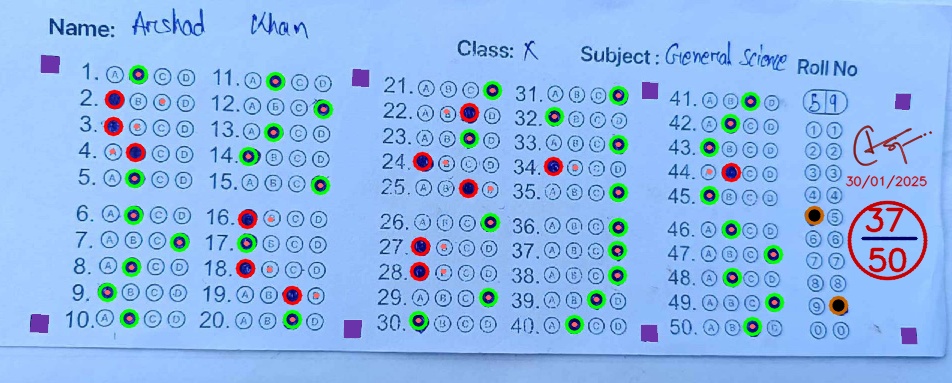 Name: Arshad Khan
Class: X
Subject: General Science
Roll No
59
1. A C D
2. B D
3. C D
4. C D
5. A C D
6. A C D
7. A B C
8. A C D
9. B C D
10. A C D
11. A C D
12. A B C
13. A C D
14. B C D
15. A B C
16. C D
17. B C D
18. C D
19. A B
20. A B D
21. A B C
22. A D
23. A B D
24. C D
25. A B
26. A B C
27. C D
28. C D
29. A B C
30. B C D
31. A B C
32. B C D
33. A B C
34. C D
35. A B C
36. A B C
37. A B C
38. A B C
39. A B D
40. A C D
41. A B D
42. A C D
43. B C D
44. C D
45. B C D
46. A C D
47. A B C
48. A C D
49. A B C
50. A B D
1 1
2 2
3 3
4 4
5
6 6
7 7
8 8
9
0 0
30/01/2025
37
50